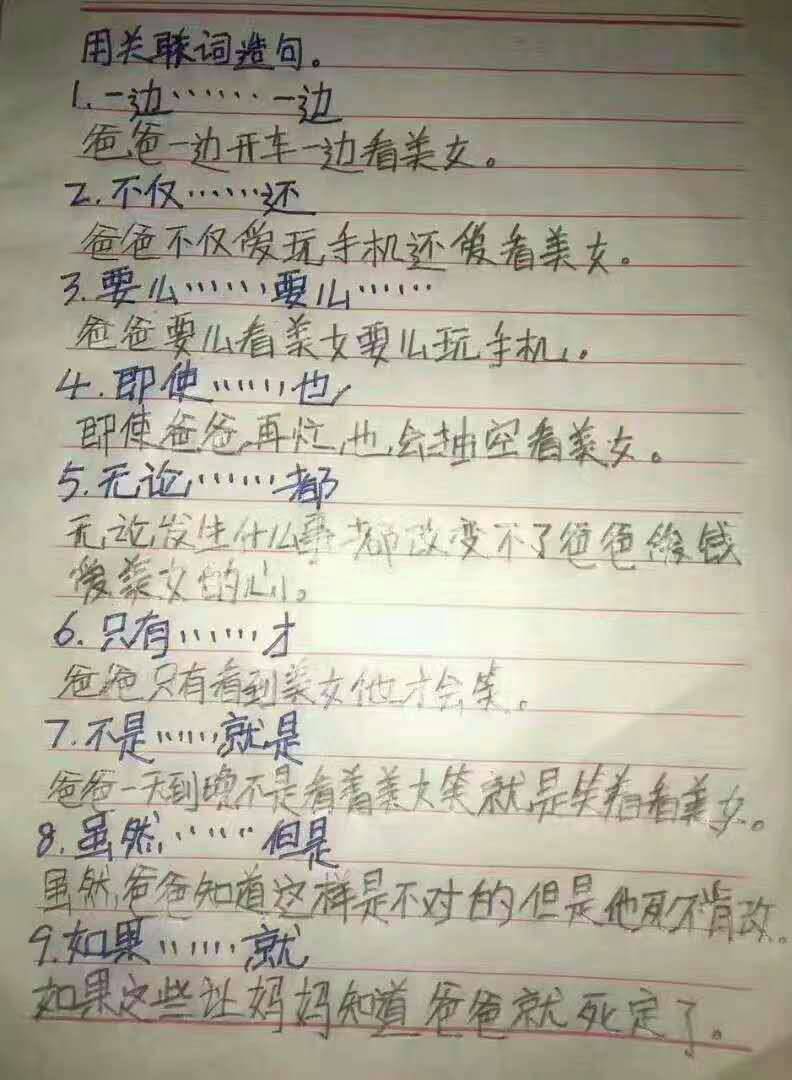 用关联词造句。
1.一边……一边
爸爸一边开车一边看美女。
2.不仅……还
爸爸不仅爱玩手机还爱看美女。
3.要么……要么……
爸爸要么看美女要么玩手机。
4.即使……也
即使爸爸再忙,也会抽空看美女。
5.无论……都
无论发生什么事都改变不了爸爸像钱
爱美女的心。
6.只有……才
爸爸只有看到美女他才会笑。
7.不是……就是
爸爸一天到晚不是看着美女笑就是笑着看美女。
8.虽然……但是
虽然爸爸知道这样是不对的但是他死不肯改。
9.如果……就
如果这些让妈妈知道爸爸就死定了。